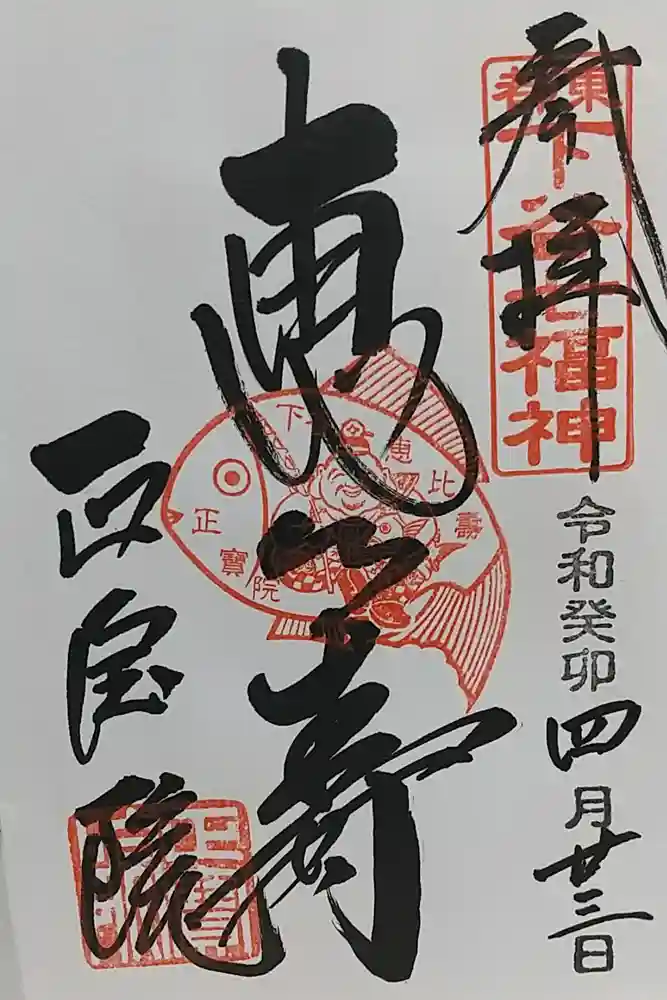 奉拝
東都
下谷七福神
令和癸卯四月廿三日
恵比寿
下谷恵比壽
正寶院
正宝院